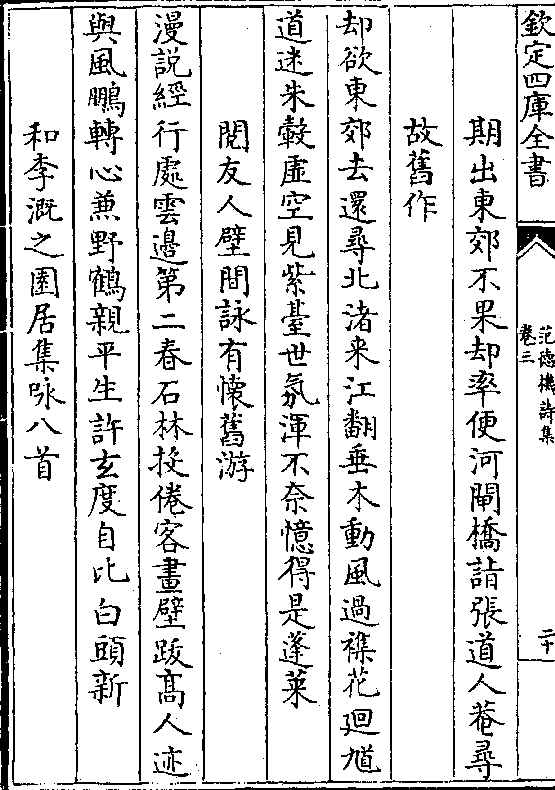 欽定四庫全書
范德機詩集
卷三
二十
期出東郊不果却率便河閘橋詣張道人菴尋
故舊作
却欲東郊去還尋北渚来江翻垂木動風過襍花廻馗
道迷朱轂虚空見紫臺世氛渾不奈憶得是蓬莱
閲友人壁間詠有懷舊游
漫説經行處雲邉第二春石林投倦客畫壁跋髙人迹
與風鵬轉心兼野鶴親平生許玄度自比白頭新
和李溉之園居集咏八首